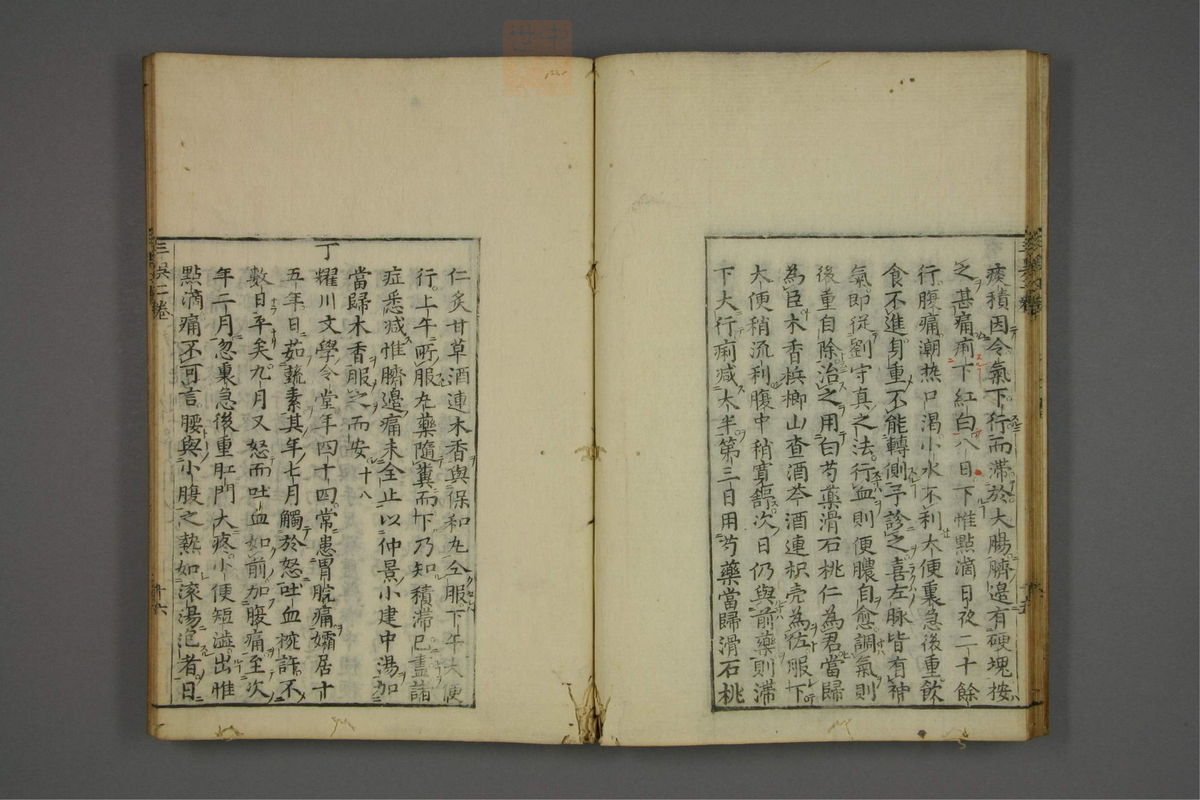 痰積因令氣下行而滯於大腸臍邊有硬塊按
之甚痛痢下紅白八日下惟點滴日夜二十餘
行腹痛潮热口渴小水不利大便裏急後重飲
食不進身重不能轉側予診之喜左脉皆有神
氣即從劉守真之法行血則便膿自愈調氣則
後重自除治之用白芍藥滑石桃仁為君當歸
為臣木香梹榔山查酒芩酒連枳壳為佐服下
大便稍流利腹中稍寛舘次日仍與前藥則滯
下大行痢减大半第三日用芍藥當歸滑石桃
仁炙甘草酒連木香與保和丸仝服下午大便
行上午所服丸藥隨糞而下乃知積滯已盡諸
症悉减惟臍邊痛未全止以仲景小建中湯加
當歸木香服之而安十八
丁耀川文學令堂年四十四常患胃脘痛孀居十
五年日茹蔬素其年七月觸於怒吐血椀許不
數日平矣九月又怒而吐血如前加腹痛至次
年二月忽裏急後重肛門大疼小便短澁出惟
點滴痛不可言腰與小腹之熱如滚湯泡者日
三吳二卷
卄六